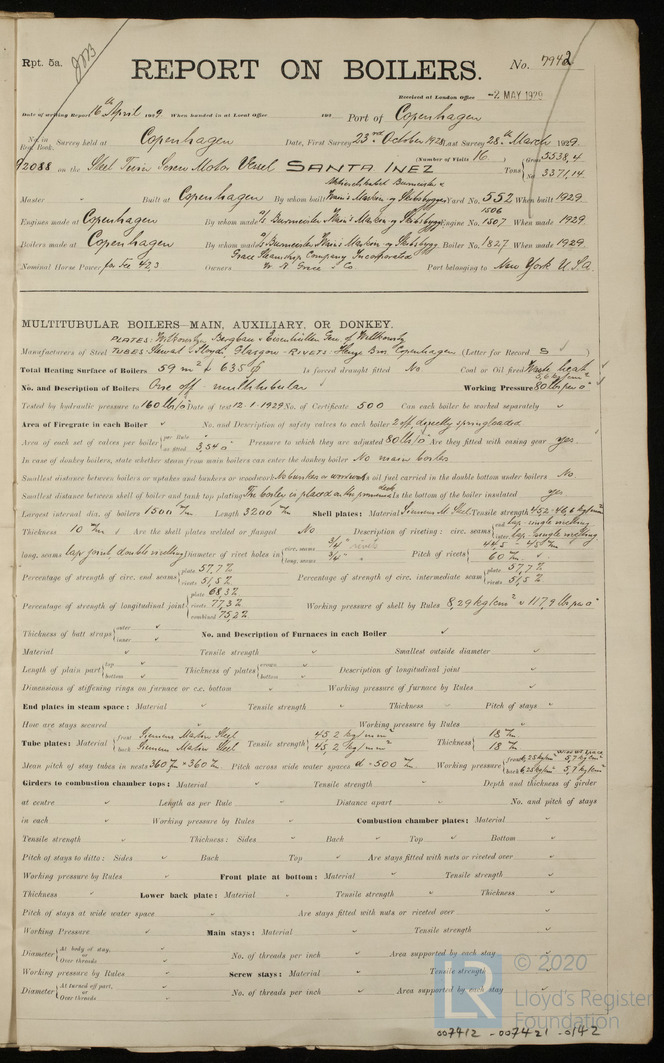 Rpt. 5a.
REPORT ON BOILERS.
No. 7942
Received at London Office -2 MAY 1929
Date of writing Report 16th April 1929 When handed in at Local Office 192 Port of Copenhagen
No. in Reg. Book. Survey held at Copenhagen Date, First Survey 23rd October 1928 Last Survey 28th March 1929
92088 on the Steel Twin Screw Motor Vessel SANTA INEZ (Number of Visits 16) Tons Gross 5538,4 Net 3371,14
Master Built at Copenhagen By whom built Yard No. 552 When built 1929
Engines made at Copenhagen By whom made Engine No. 1506 1507 When made 1929
Boilers made at Copenhagen By whom made Boiler No. 1827 When made 1929
Nominal Horse Power Owners Grace Steamship Company Incorporated W. R. Grace & Co. Port belonging to New York U.S.A.
MULTITUBULAR BOILERS—MAIN, AUXILIARY, OR DONKEY.
Manufacturers of Steel PLATES: TUBES: Glasgow - RIVETS: Copenhagen (Letter for Record S)
Total Heating Surface of Boilers 59 m² = 635 Is forced draught fitted No Coal or Oil fired Waste heat
No. and Description of Boilers One off multitubular Working Pressure 80 lbs per
Tested by hydraulic pressure to 160 lbs Date of test 12-1-1929 No. of Certificate 500 Can each boiler be worked separately
Area of Firegrate in each Boiler No. and Description of safety valves to each boiler 2 off directly springloaded
Area of each set of valves per boiler {per Rule as fitted Pressure to which they are adjusted 80 lbs Are they fitted with easing gear yes
In case of donkey boilers, state whether steam from main boilers can enter the donkey boiler No main boiler
Smallest distance between boilers or uptakes and bunkers or woodwork No bunkers or woodwork Is oil fuel carried in the double bottom under boilers No
Smallest distance between shell of boiler and tank top plating The boiler is placed on the deck Is the bottom of the boiler insulated yes
Largest internal dia. of boilers 1500 mm Length 3200 mm Shell plates: Material Siemens M. Steel Tensile strength 45,2-46,6 kg/mm²
Thickness 10 mm Are the shell plates welded or flanged No Description of riveting: circ. seams {end lap-single riveting inter. lap-single riveting
long. seams lap joint double riveting Diameter of rivet holes in {circ. seams 3/4" rivets long. seams 3/4" Pitch of rivets {44,5 - 45 mm 60 mm
Percentage of strength of circ. end seams {plate 57,7% rivets 51,5% Percentage of strength of circ. intermediate seam {plate 57,7% rivets 51,5%
Percentage of strength of longitudinal joint {plate 68,3% rivets 77,3% combined 75,2% Working pressure of shell by Rules 8,29 kg/cm² = 117,9 lbs per
Thickness of butt straps {outer inner No. and Description of Furnaces in each Boiler
Material Tensile strength Smallest outside diameter
Length of plain part {top bottom Thickness of plates {crown bottom Description of longitudinal joint
Dimensions of stiffening rings on furnace or c.c. bottom Working pressure of furnace by Rules
End plates in steam space: Material Tensile strength Thickness Pitch of stays
How are stays secured Working pressure by Rules
Tube plates: Material {front Siemens Martin Steel back Siemens Martin Steel Tensile strength {45,2 kg/mm² 45,2 kg/mm² Thickness {18 mm 18 mm
Mean pitch of stay tubes in nests 360 mm × 360 mm Pitch across wide water spaces d = 500 mm Working pressure {front 6,25 kg/cm² 5,7 kg/cm² back 6,25 kg/cm² 5,7 kg/cm²
Girders to combustion chamber tops: Material Tensile strength Depth and thickness of girder
at centre Length as per Rule Distance apart No. and pitch of stays
in each Working pressure by Rules Combustion chamber plates: Material
Tensile strength Thickness: Sides Back Top Bottom
Pitch of stays to ditto: Sides Back Top Are stays fitted with nuts or riveted over
Working pressure by Rules Front plate at bottom: Material Tensile strength
Thickness Lower back plate: Material Tensile strength Thickness
Pitch of stays at wide water space Are stays fitted with nuts or riveted over
Working Pressure Main stays: Material Tensile strength
Diameter {At body of stay, or Over threads No. of threads per inch Area supported by each stay
Working pressure by Rules Screw stays: Material Tensile strength
Diameter {At turned off part, or Over threads No. of threads per inch Area supported by each stay
LR © 2020 Lloyd's Register Foundation
007412 - 007421 - 0142